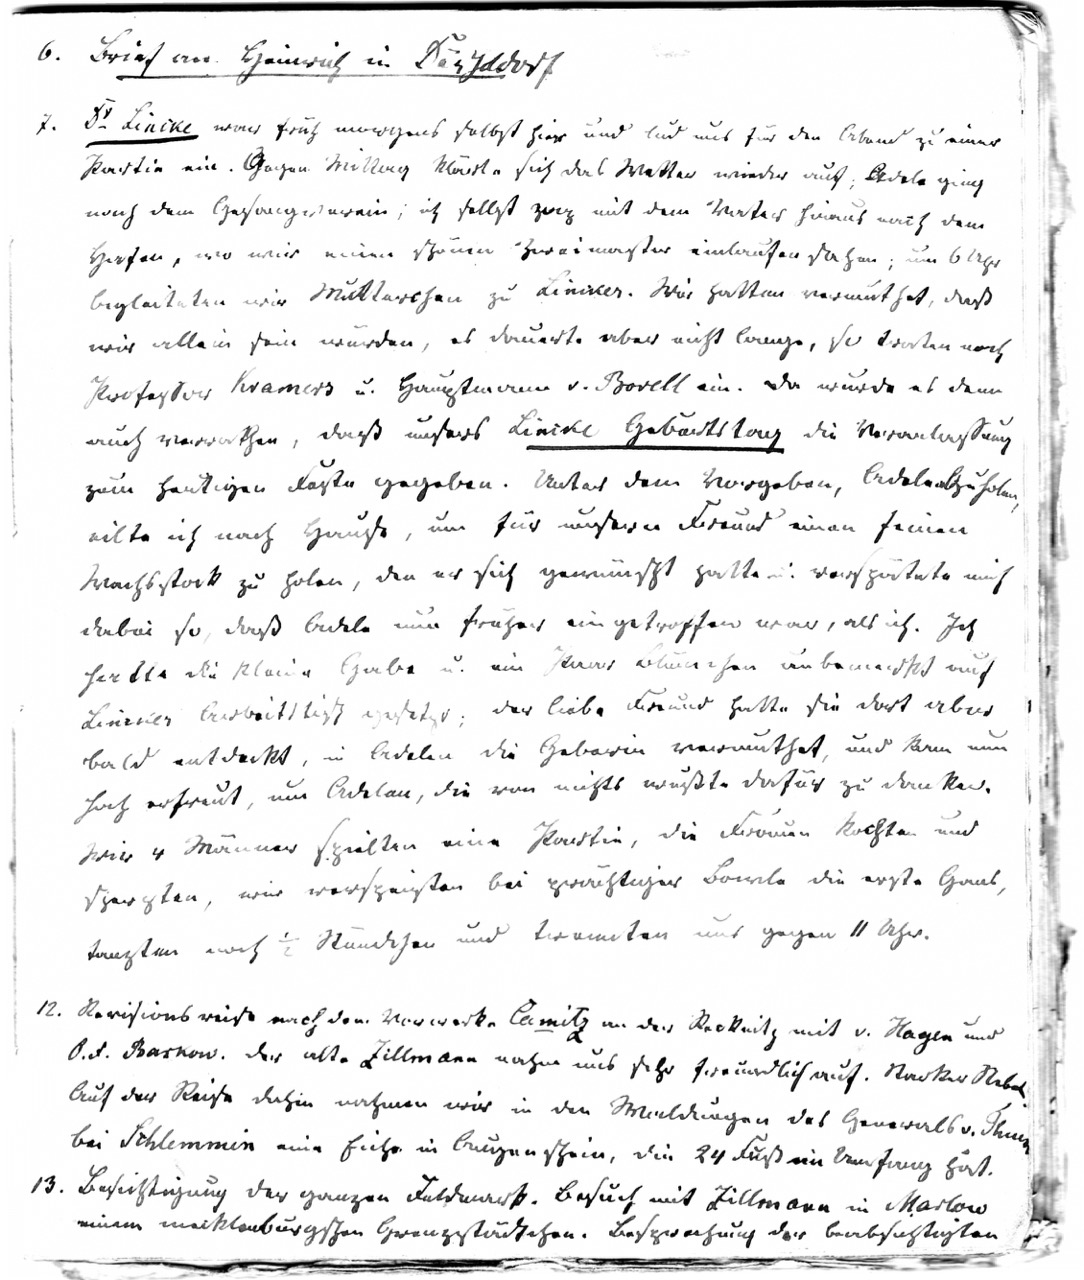 6. Brief an Heinrich in
7. Dr Lincke war früh morgens selbst hier und lud uns für den Abend zu einer
Partie ein. Gegen Mittag klärte sich das Wetter wieder auf; Adele ging
nach dem Gesangverein; ich selbst ging mit dem Vater hinaus nach dem
Hafen, wo wir einen schönen Zweimaster einlaufen sahen; um 6 Uhr
begleiteten wir Mutterchen zu Linckes. Wir hatten vermuthet, daß
wir allein sein würden, es dauerte aber nicht lange, so traten noch
Professor Kramers u. Hauptmann v. Borell ein. Da wurde es denn
auch verrathen, daß unsers Lincke Geburtstag die Veranlassung
zum heutigen Feste gegeben. Unter dem Vorgeben, Adele abzuholen,
eilte ich nach Hause, um für unsern Freund einen feinen
Wachsstock zu holen, den er sich gewünscht hatte u. verspätete mich
dabei so, daß Adele nun früher eingetroffen war, als ich. Ich
hatte die kleine Gabe u. ein Paar Blümchen unbemerkt auf
Linckes Arbeitstisch gesetzt; der liebe Freund hatte sie dort aber
bald entdeckt, in Adelen die Geberin vermuthet, und kam nun
hoch erfreut, um Adelen, die von nichts wußte dafür zu danken.
Wir 4 Männer spielten eine Partie, die Frauen kochten und
scherzten, wir verspeisten bei prächtiger Bowle die erste Gans,
tanzten noch ½ Stündchen und trennten uns gegen 11 Uhr.
12. Revisionsreise nach dem Vorwerke Camitz an der Recknitz mit v. Hagen und
O.F. Baskow. Der alte Zillmann nahm uns sehr freundlich auf. Starker Nebel.
Auf der Reise dahin nahmen wir in den Waldungen des Generals v. Thun
bei Schlemmin eine Eiche in Augenschein, die 24 Fuß im Umfang hat.
13. Besichtigung der ganzen Feldmark. Besuch mit Zillmann in Marlow
einem mecklenburgschen Grenzstädtchen. Besprechung der beabsichtigten